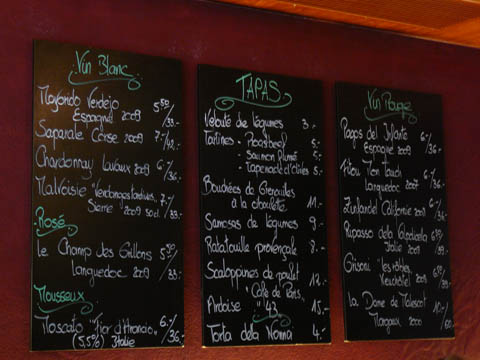 Vin Blanc
Mayoral Verdejo 5.50/
Espagne 2009 33.-
Saparale Corse 2009 7.-/42.-
Chardonnay Lavaux 2009 6.-/36.-
Malvoisie "Vendanges tardives"
Sierre 2009 5dl. 7.-/39.-
Rosé
Le Champ des Grillons 5.50/
Languedoc 2009 33.-
Mousseux
Moscato Fior d'Arancio 6.-/
(5,5%) Italie 36.-
TAPAS
Velouté de légumes 3.-
Tartines - Roastbeef 5.-
- Saumon fumé 5.-
- Tapenade d'olives 5.-
Bouchées de Grenouilles
à la ciboulette 11.-
Samosas de légumes 9.-
Ratatouille provençale 8.-
Scaloppines de poulet
"Café de Paris" 12.-
Ardoise "43" 15.-
Torta dela Nonna 4.-
Vin Rouge
Pagos del Infante 6.-/
Espagne 2009 36.-
Mon
Languedoc 2007 6.-/36.-
Zinfandel Californie 2009 6.-/36.-
Ripasso della
Italie 2009 6.50/39.-
Grisoni "les
Neuchâtel 2009 6.50/39.-
La Dame de Malescot
Margaux 2000 /60.-